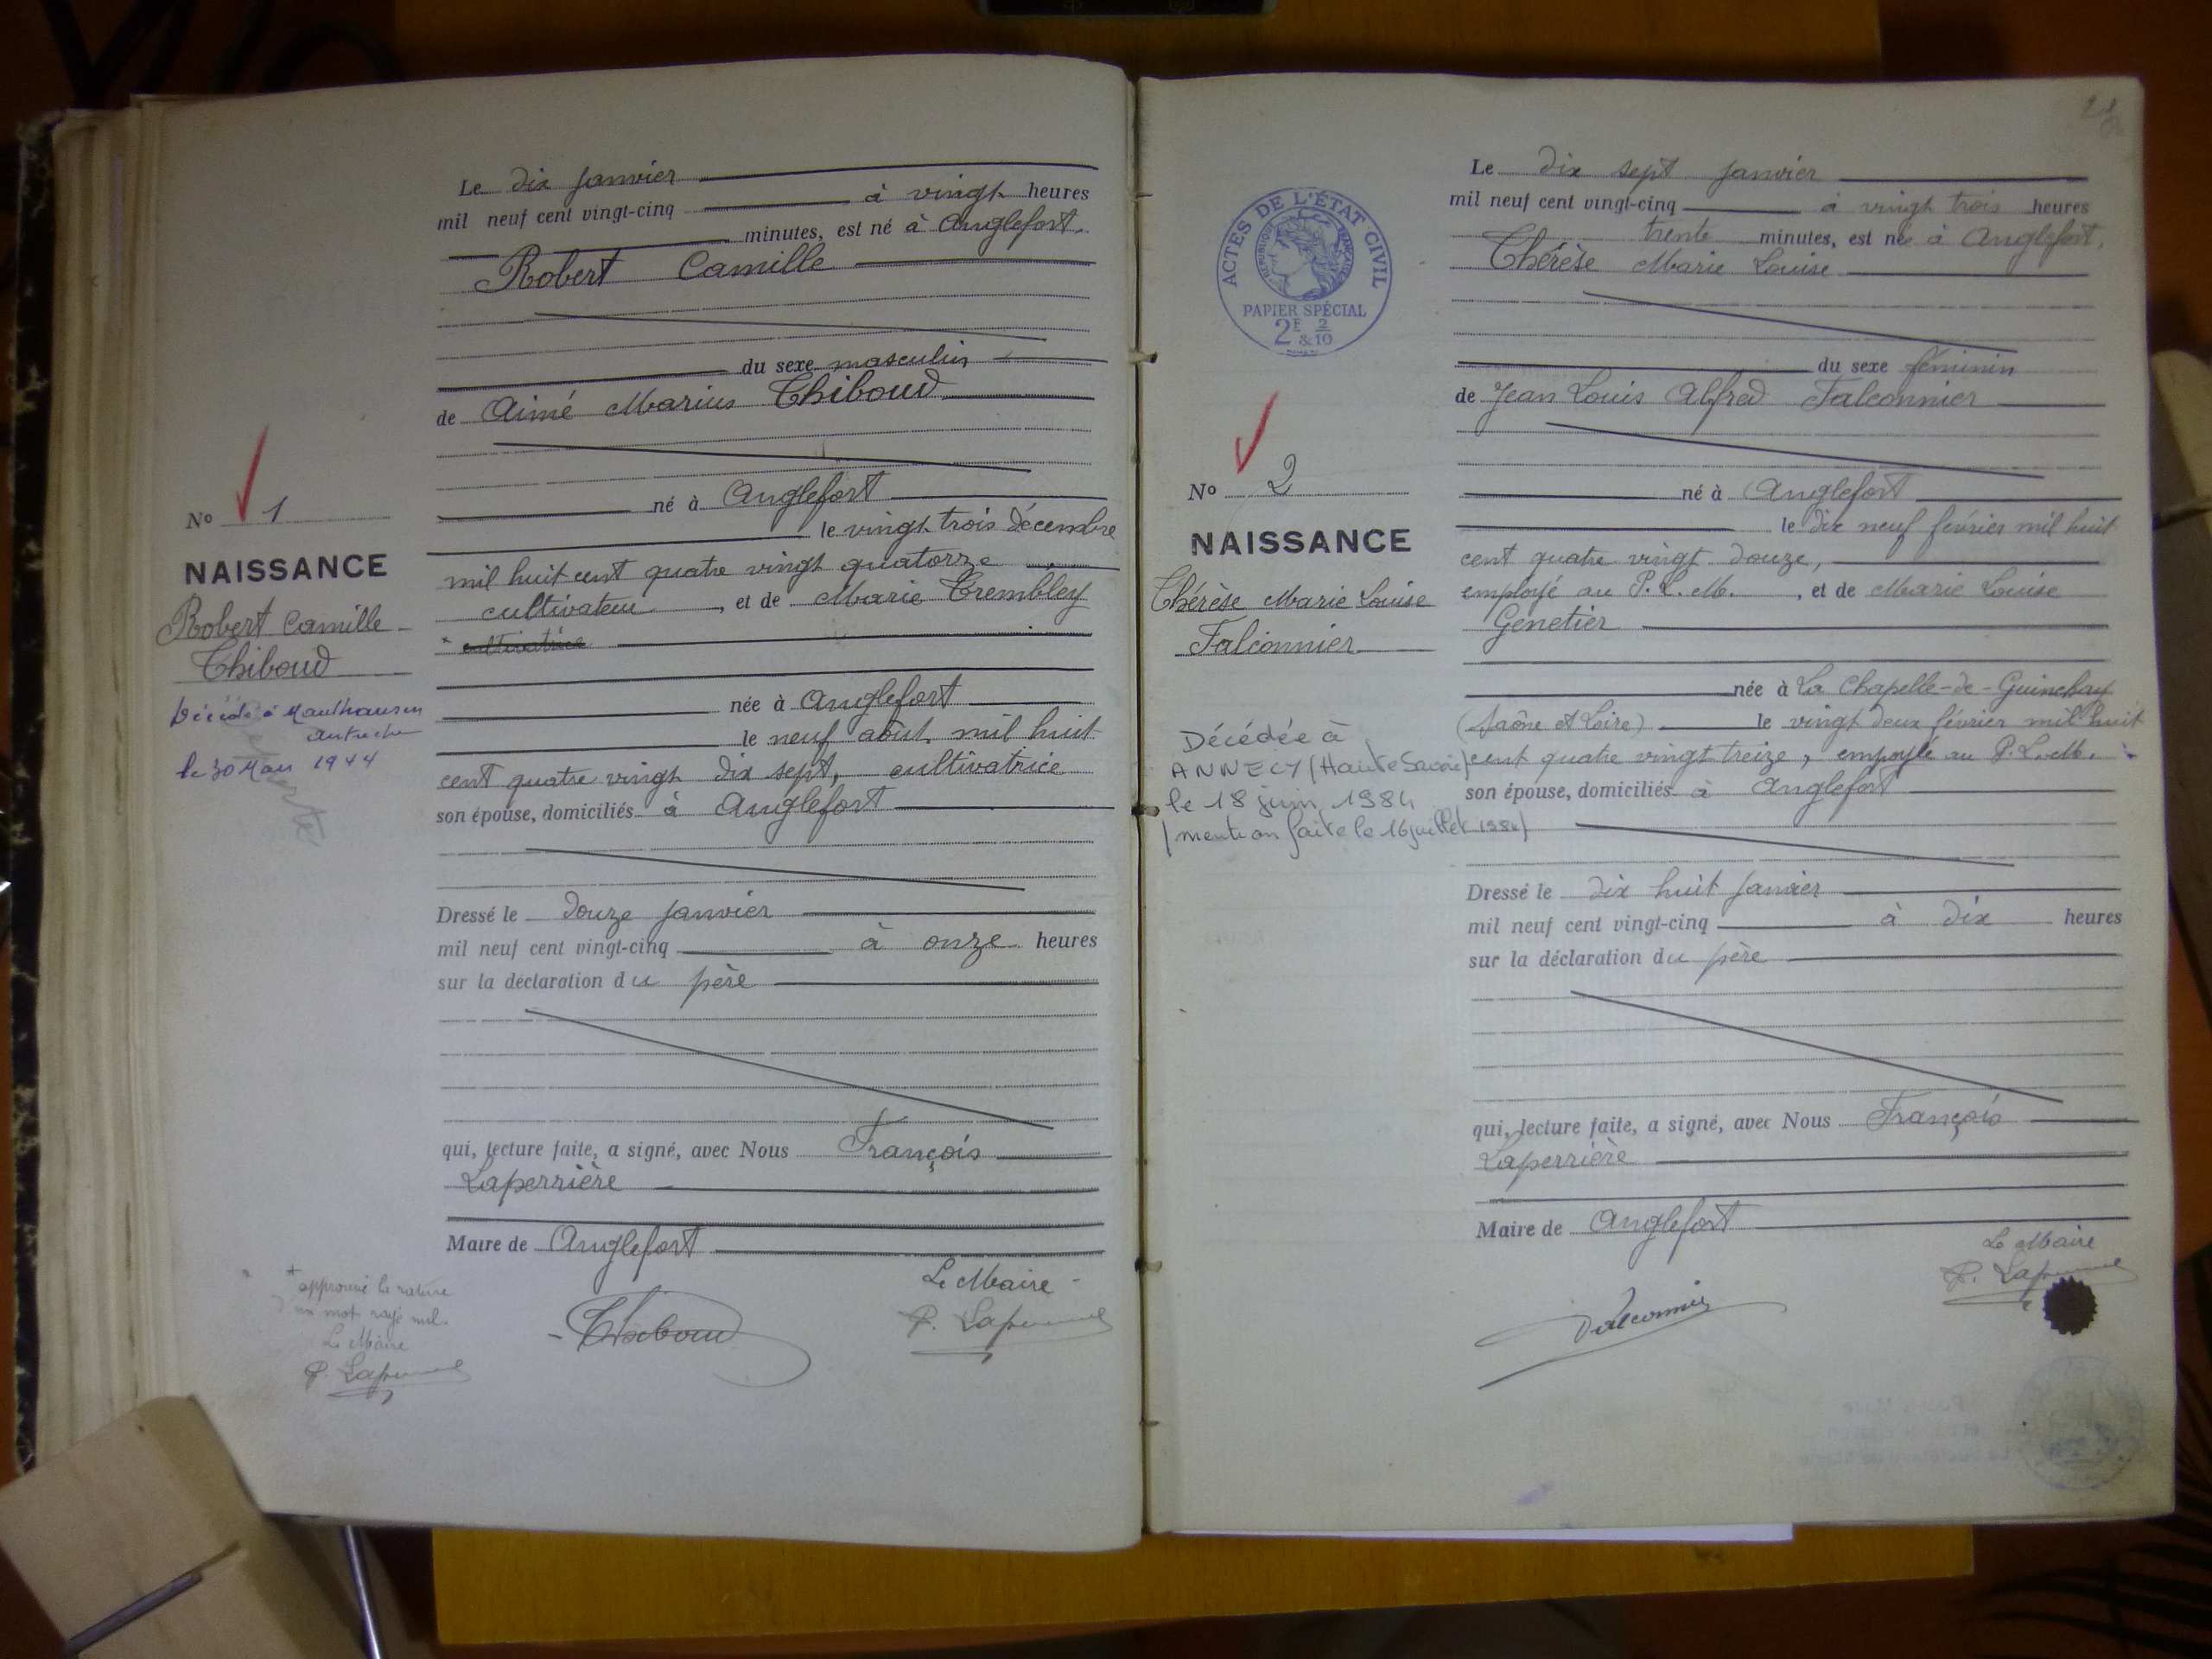 Le dix janvier
mil neuf cent vingt-cinq à vingt heures
minutes, est né à Anglefort.
Robert Camille
du sexe masculin
de Aimé Marius Thiboud
né à Anglefort
le vingt trois décembre
mil huit cent quatre vingt quatorze
cultivateur, et de Marie Trembley
* cultivatrice
née à Anglefort
le neuf août mil huit
cent quatre vingt dix sept, cultivatrice
son épouse, domiciliés à Anglefort
Dressé le douze janvier
mil neuf cent vingt-cinq à onze heures
sur la déclaration du père
qui, lecture faite, a signé, avec Nous François
Laperrière
Maire de Anglefort
Le Maire
Thiboud
No 1
NAISSANCE
Robert Camille
Thiboud
Décédé à Mauthausen
Autriche
le 30 Mars 1944
* approuvé la rature
d'un mot rayé nul.
Le Maire
28
ACTES DE L'ÉTAT CIVIL
RÉPUBLIQUE FRANÇAISE
PAPIER SPÉCIAL
2F & 2/10
No 2
NAISSANCE
Thérèse Marie Louise
Falconnier
Décédée à
ANNECY (Haute Savoie)
le 18 juin 1984
(mention faite le 16 juillet 1984)
Le dix sept janvier
mil neuf cent vingt-cinq à vingt trois heures
trente minutes, est née à Anglefort,
Thérèse Marie Louise
du sexe féminin
de Jean Louis Alfred Falconnier
né à Anglefort
le dix neuf février mil huit
cent quatre vingt douze,
employé au P.L.M., et de Marie Louise
Genetier
née à La Chapelle-de-Guinchay
(Saône et Loire) le vingt deux février mil huit
cent quatre vingt treize, employée au P.L.M.
son épouse, domiciliés à Anglefort
Dressé le dix huit janvier
mil neuf cent vingt-cinq à dix heures
sur la déclaration du père
qui, lecture faite, a signé, avec Nous François
Laperrière
Maire de Anglefort
Le Maire
Falconnier